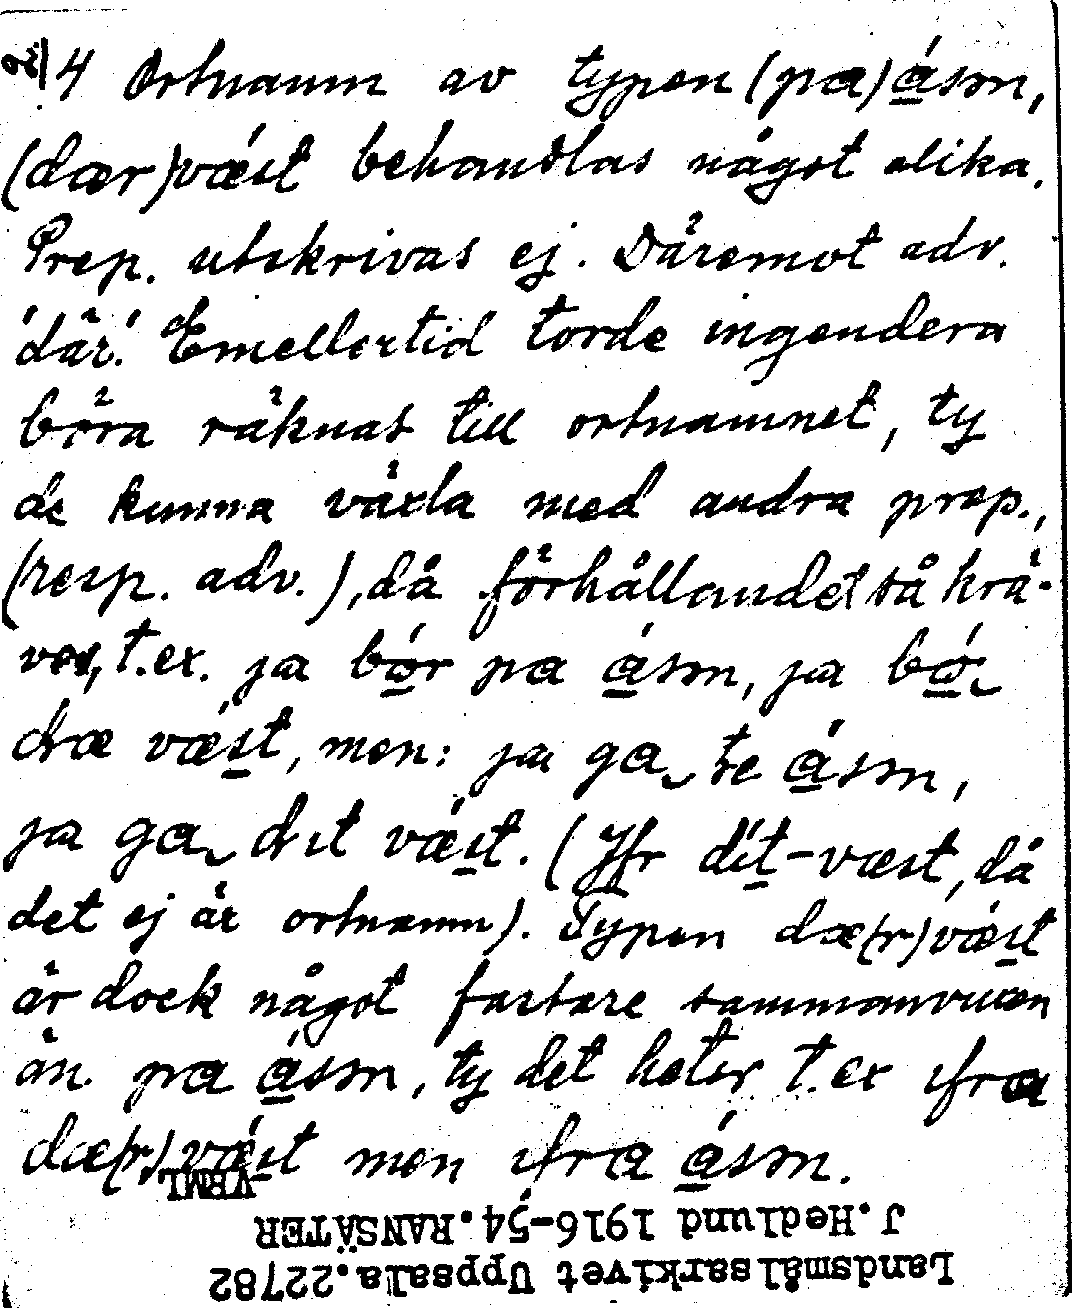 4 Ortnamn av typen (pa) ásm,
(dær)vǽst behandlas något olika.
Prep. utskrivas ej. Däremot adv.
'där'. Emellertid torde ingendera
böra räknas till ortnamnet, ty
de kunna växla med andra prep.,
(resp. adv.), då förhållandet så krä-
ver, t.ex. ja bór pa ásm, ja bó
dræ vǽst, men: ja ga te ásm,
ja ga dit vǽst. (Jfr dít-væst, då
det ej är ortnamn). Typen dæ(r)vǽst
är dock något fastare sammanvuxen
än pa ásm, ty det heter t.ex ifra
dæ(r)vǽst men ifra ásm.
VRML
J.Hedlund 1916-54.RANSÄTER
Landsmålsarkivet Uppsala.22782